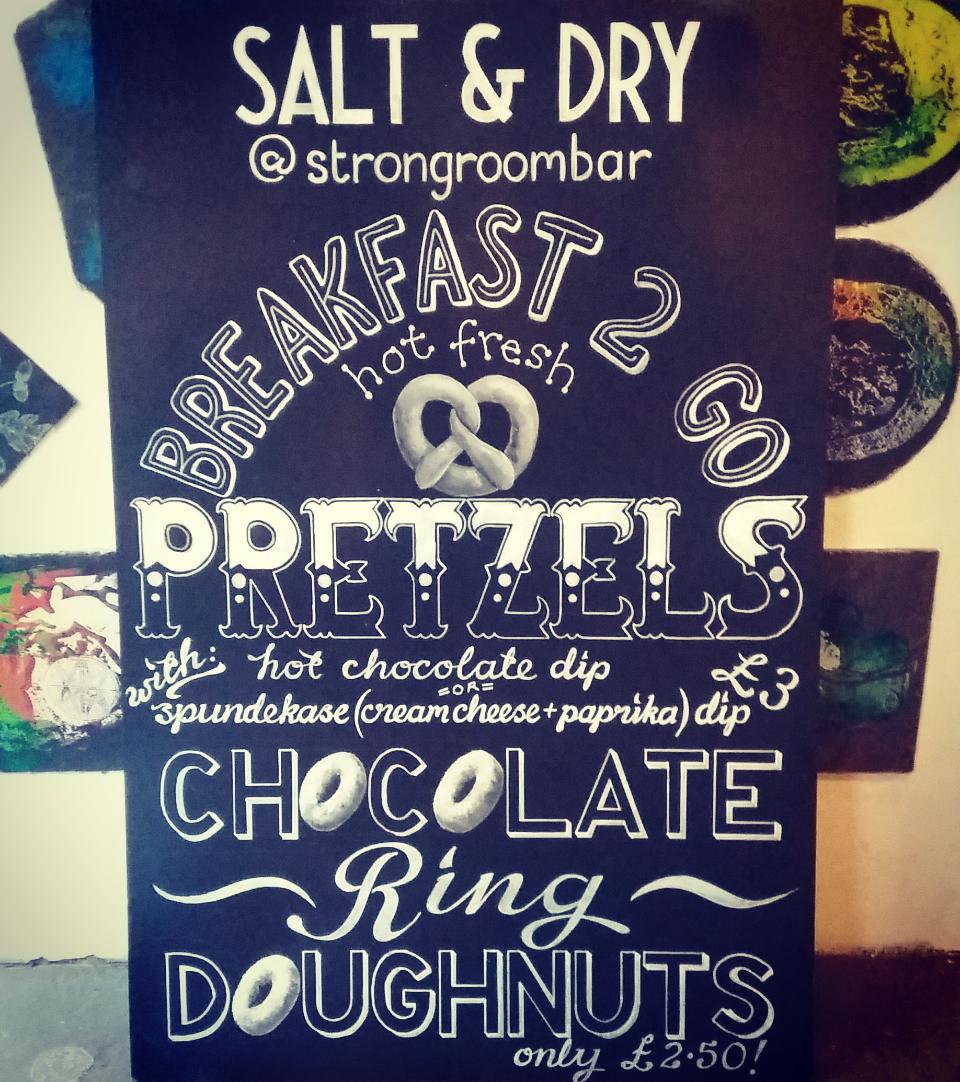 SALT & DRY
@strongroombar
BREAKFAST 2 GO
hot fresh
PRETZELS
with: hot chocolate dip
=OR=
spundekase (cream cheese + paprika) dip
£3
CHOCOLATE
Ring
DOUGHNUTS
only £2.50!